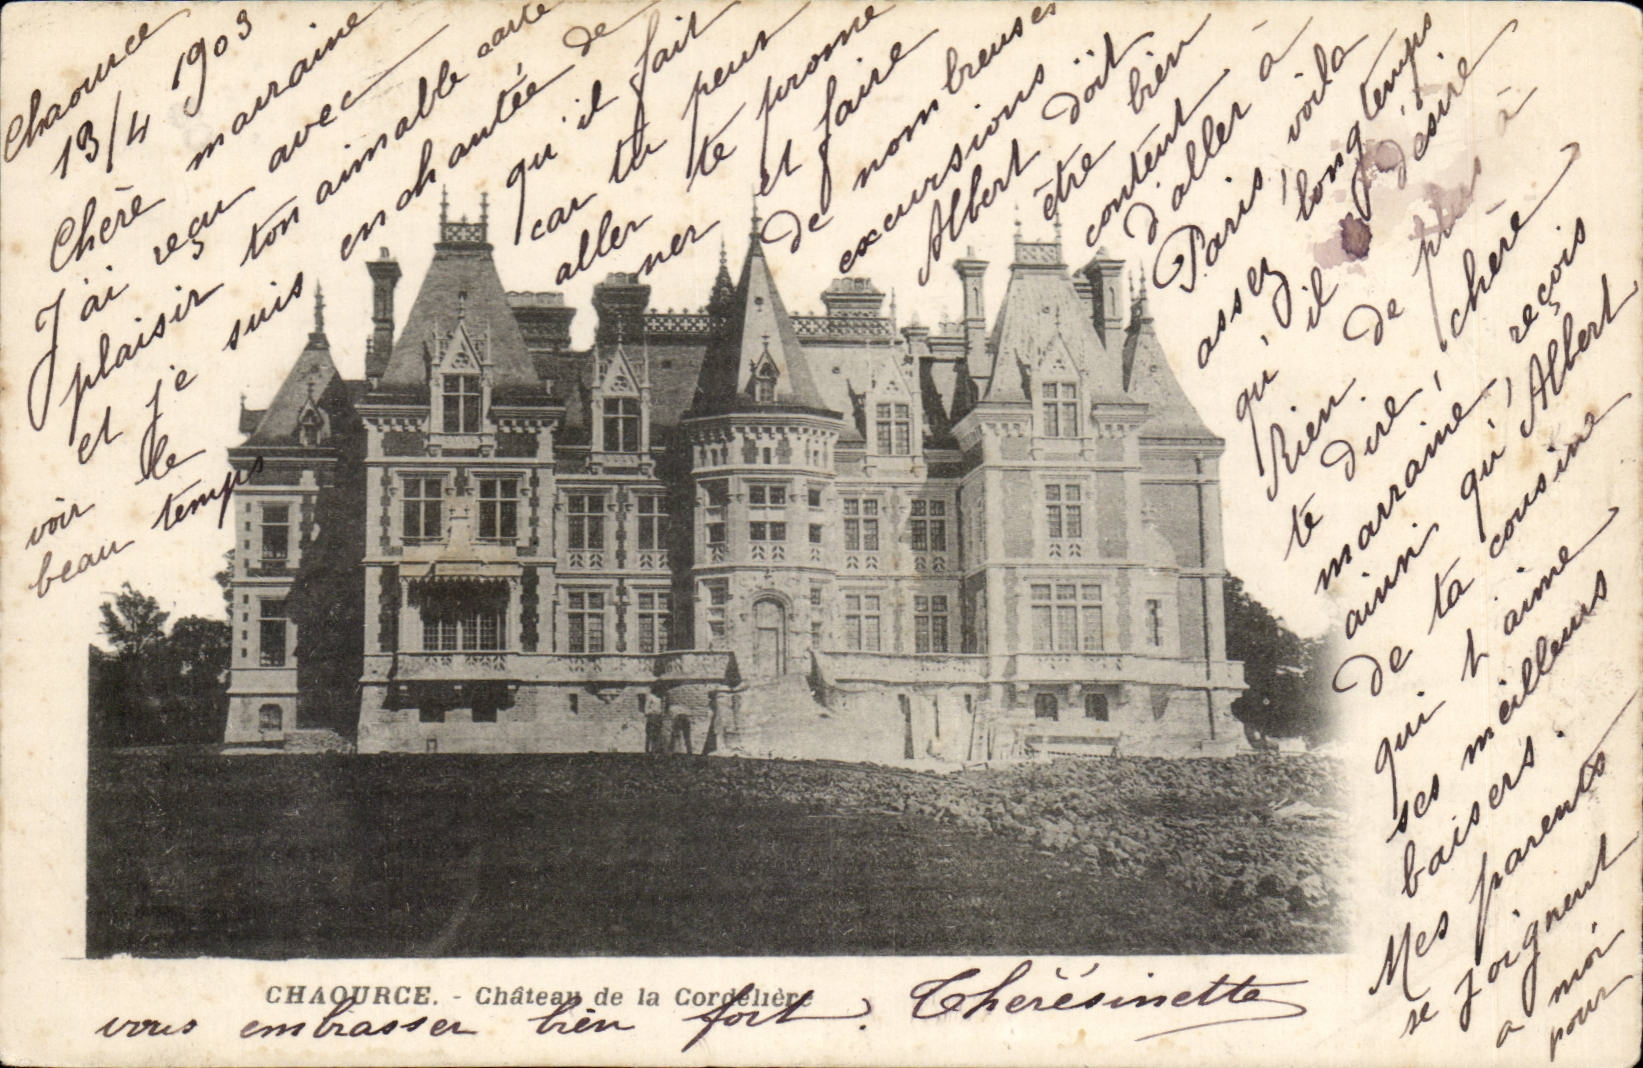 Chaource
13/4 1903
Chère marraine
J'ai reçu avec
plaisir ton aimable carte
et je suis enchantée de
voir le
beau temps
qu'il fait
car tu peux
aller te prome
ner et faire
de nombreuses
excursions
Albert doit
être bien
content
d'aller à
Paris, voila
assez longtemps
qu'il désire
Rien de plus à
te dire, chère
marraine, reçois
ainsi qu'Albert
de ta cousine
qui t'aime
ses meilleurs
baisers.
Mes parents
se joignent
a moi
pour
vous embrasser bien fort. Thérésinette
CHAOURCE. - Château de la Cordelière